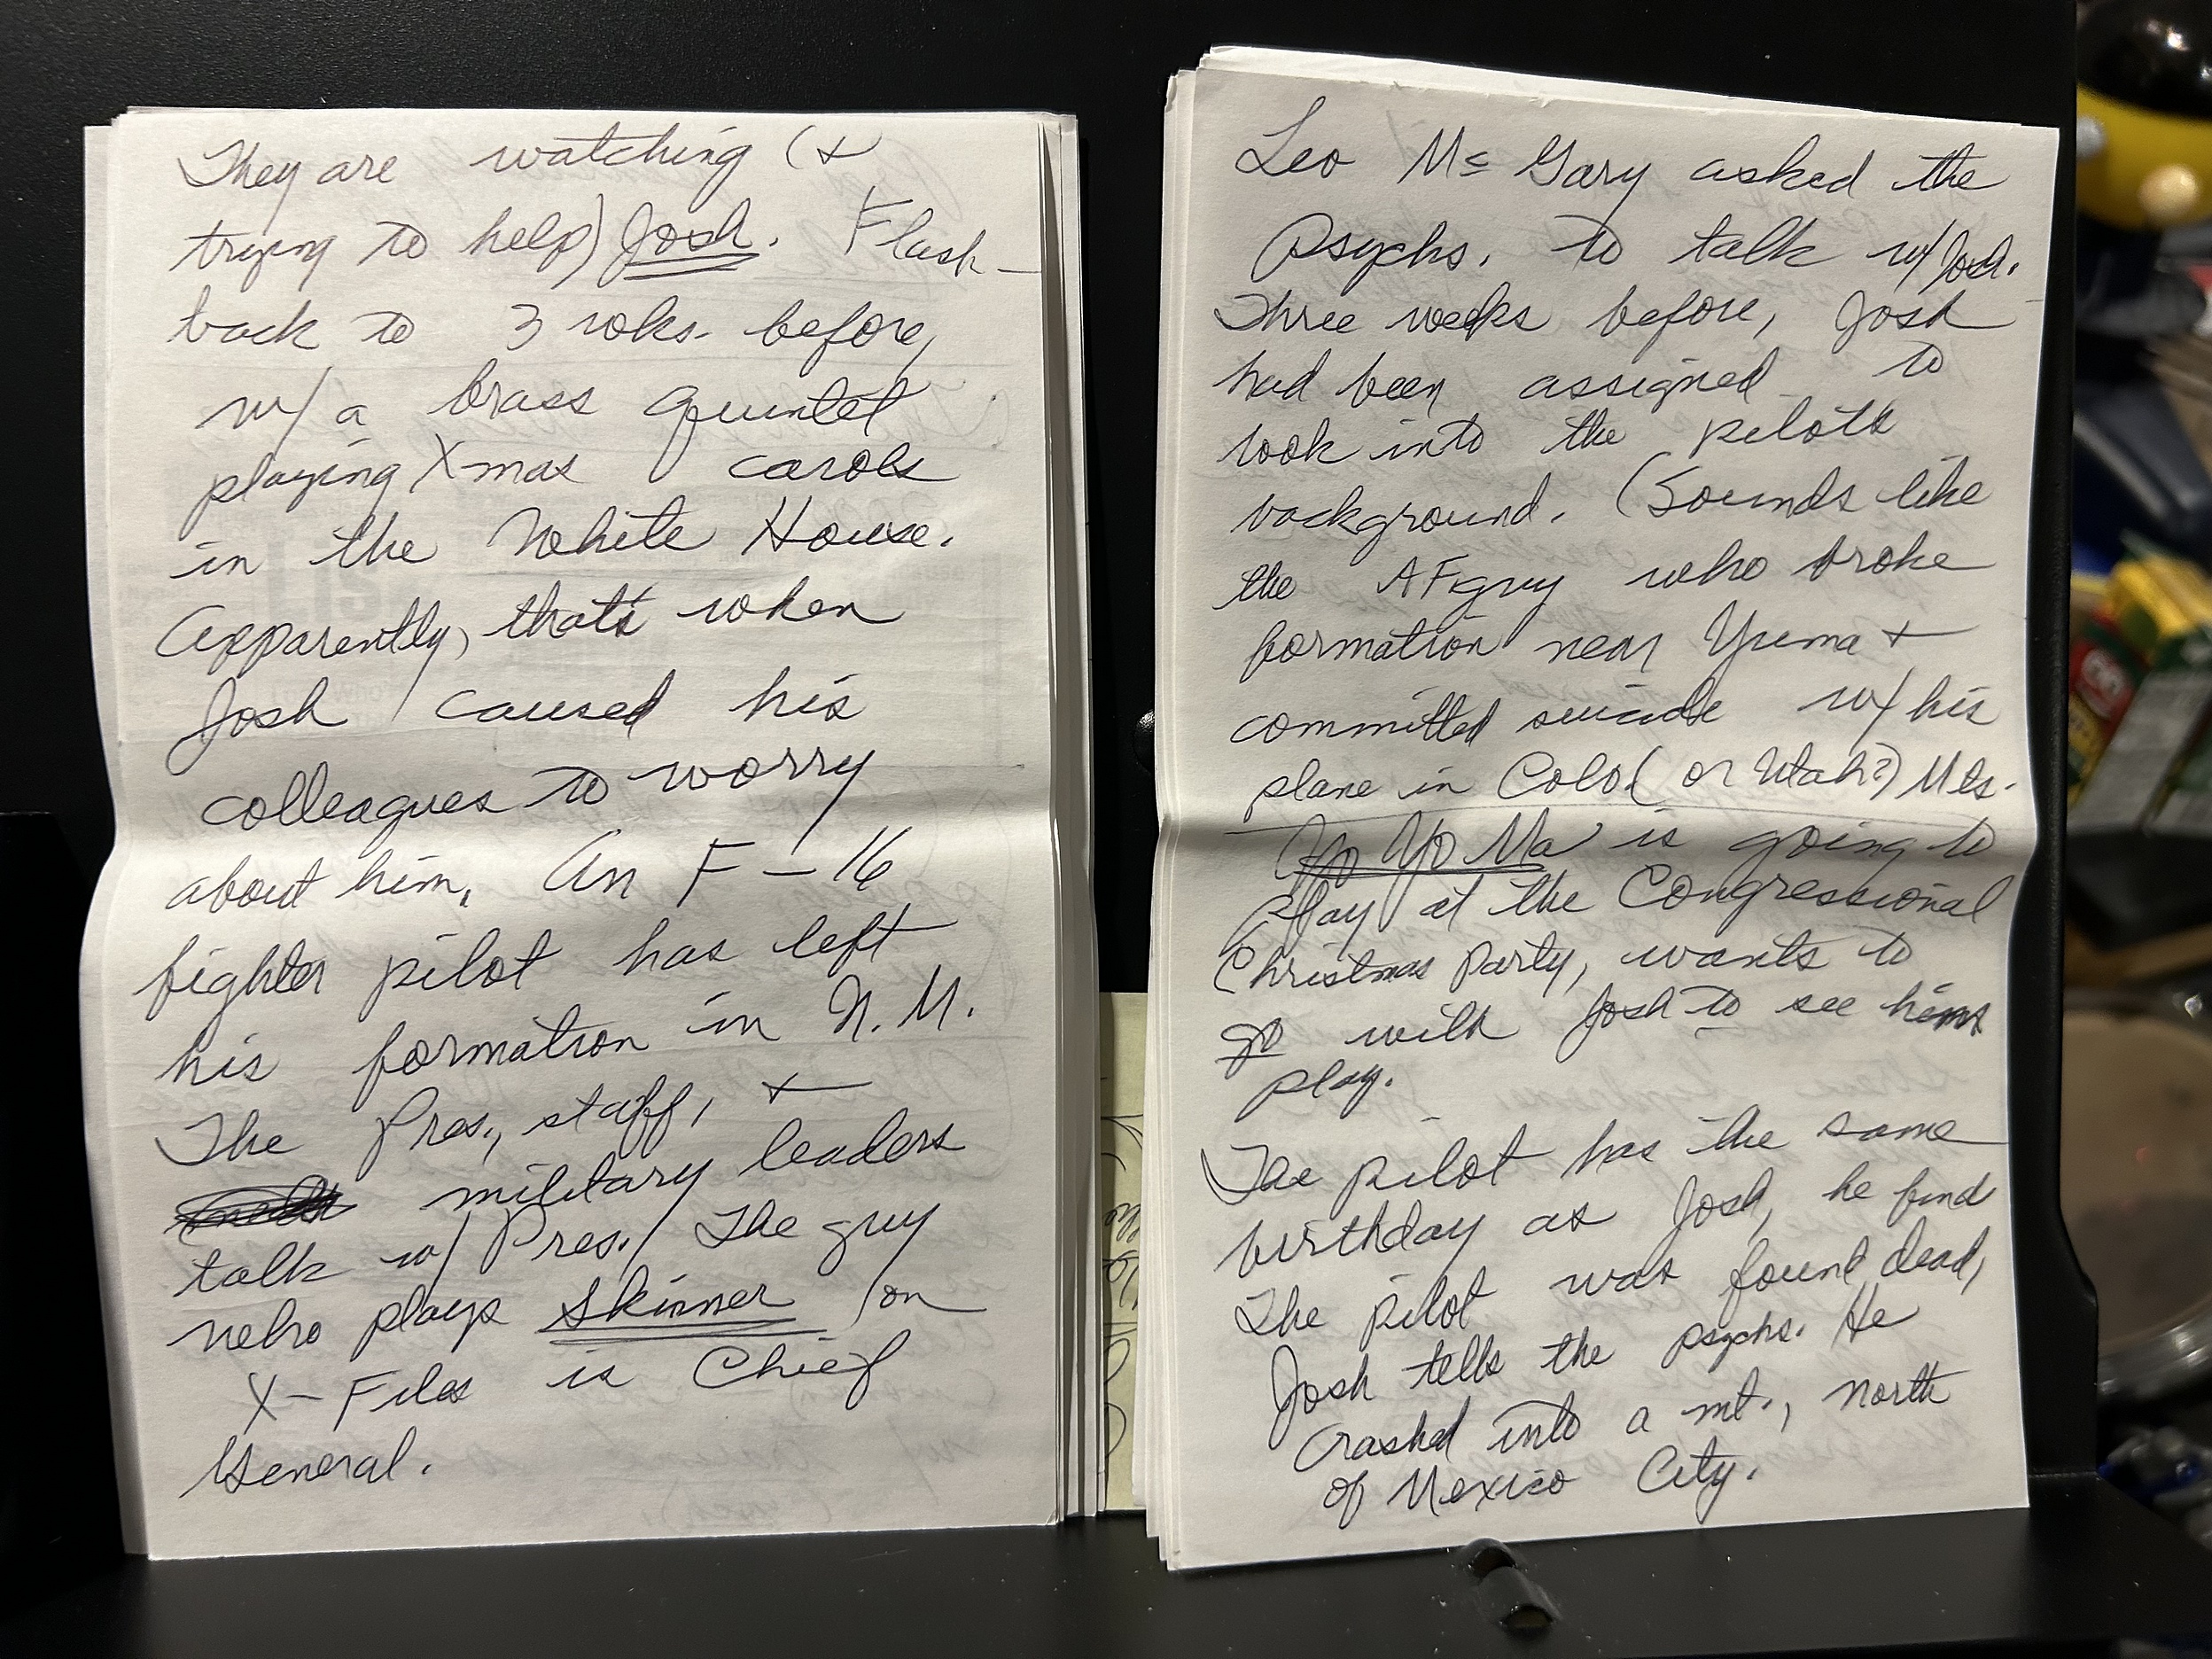 They are watching (+
trying to help) Josh. Flash-
back to 3 wks. before,
w/ a brass quintet
playing X-mas carols
in the White House.
Apparently, that's when
Josh caused his
colleagues to worry
about him. An F-16
fighter pilot has left
his formation in N.M.
The Pres., staff, +
military leaders
talk w/ Pres. The guy
who plays Skinner on
X-Files is Chief
General.
Leo McGary asked the
Psychs. to talk w/ Josh.
Three weeks before, Josh
had been assigned to
look into the pilots
background. (Sounds like
the AF guy who broke
formation near Yuma +
committed suicide w/ his
plane in Colo (or Utah?) Mts.
Yo Yo Ma is going to
play at the Congressional
Christmas Party, wants to
go with Josh to see him
play.
The pilot has the same
birthday as Josh, he find
The pilot was found dead,
Josh tells the psychs. He
crashed into a mt., north
of Mexico City.